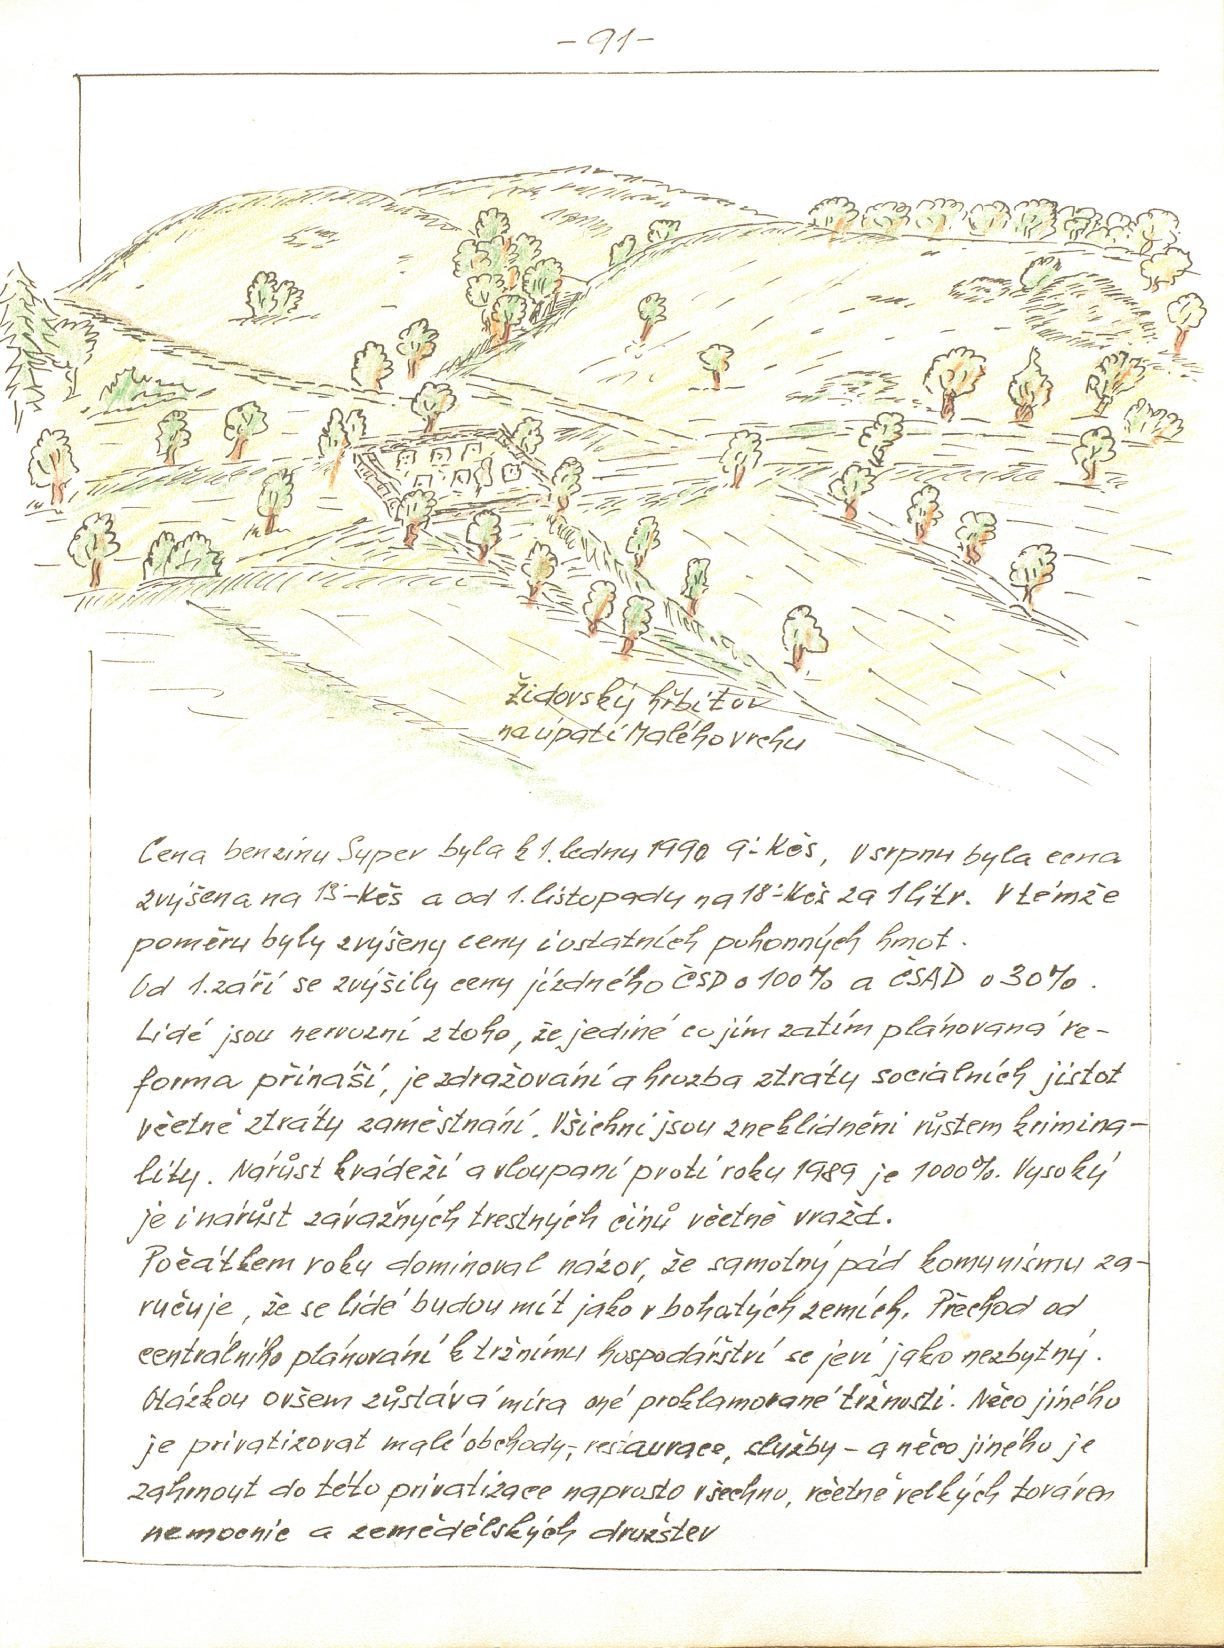 - 91 -
Židovský hřbitov
na úpatí Malého vrchu
Cena benzinu Super byla k 1. lednu 1990 9,- Kčs, v srpnu byla cena
zvýšena na 13,- Kčs a od 1. listopadu na 18,- Kčs za 1 litr. V témže
poměru byly zvýšeny ceny i ostatních pohonných hmot.
Od 1. září se zvýšily ceny jízdného ČSD o 100% a ČSAD o 30%.
Lidé jsou nervozní z toho, že jediné co jim zatím plánovaná re-
forma přináší, je zdražování a hrozba ztráty sociálních jistot
včetně ztráty zaměstnání. Všichni jsou zneklidněni růstem krimina-
lity. Nárůst krádeží a vloupaní proti roku 1989 je 1000%. Vysoký
je i nárůst závažných trestných činů včetně vražd.
Počátkem roku dominoval názor, že samotný pád komunismu za-
ručuje, že se lidé budou mít jako v bohatých zemích. Přechod od
centrálního plánování k tržnímu hospodářství se jeví jako nezbytný.
Otázkou ovšem zůstává míra oné proklamované tržnosti. Něco jiného
je privatizovat malé obchody, restaurace, služby - a něco jiného je
zahrnout do této privatizace naprosto všechno, včetně velkých továren
nemocnic a zemědělských družstev